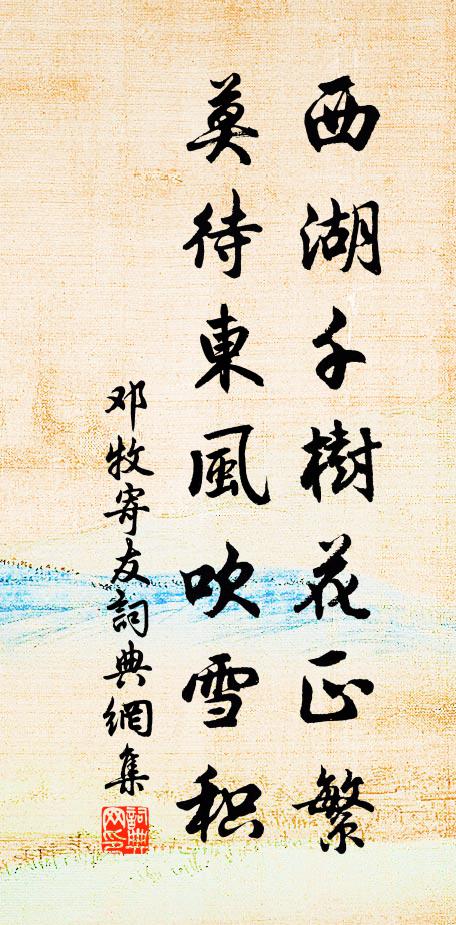 西湖千樹花正繁
莫待東風吹雪积
邓牧寄友詞典網集
詞典
网印